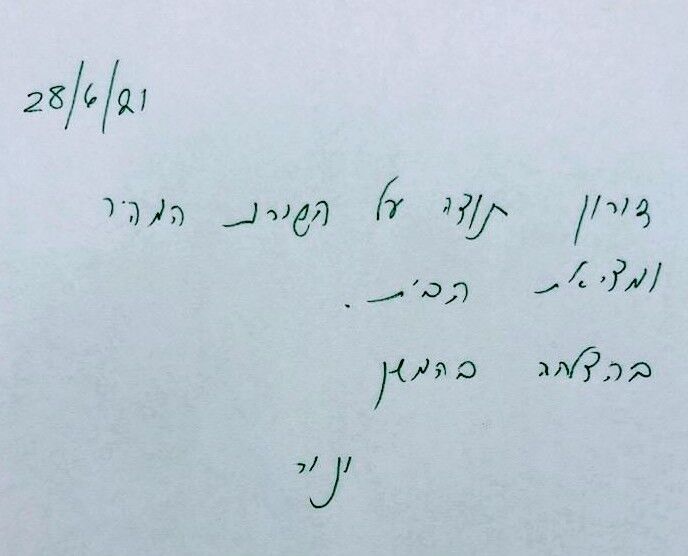 28/6/21
דורון תודה על השירות המהיר
ומציאת הבית.
בהצלחה בהמשך